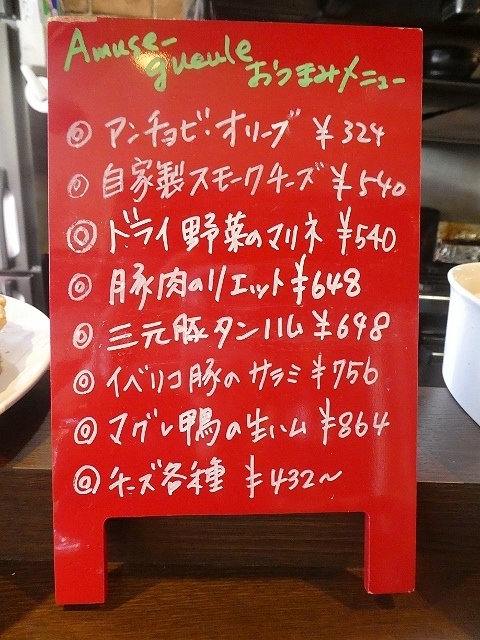 Amuse-
gueule おつまみメニュー
◎ アンチョビ・オリーブ ¥324
◎ 自家製スモークチーズ ¥540
◎ ドライ野菜のマリネ ¥540
◎ 豚肉のリエット ¥648
◎ 三元豚タンハム ¥698
◎ イベリコ豚のサラミ ¥756
◎ マグレ鴨の生ハム ¥864
◎ チーズ各種 ¥432〜